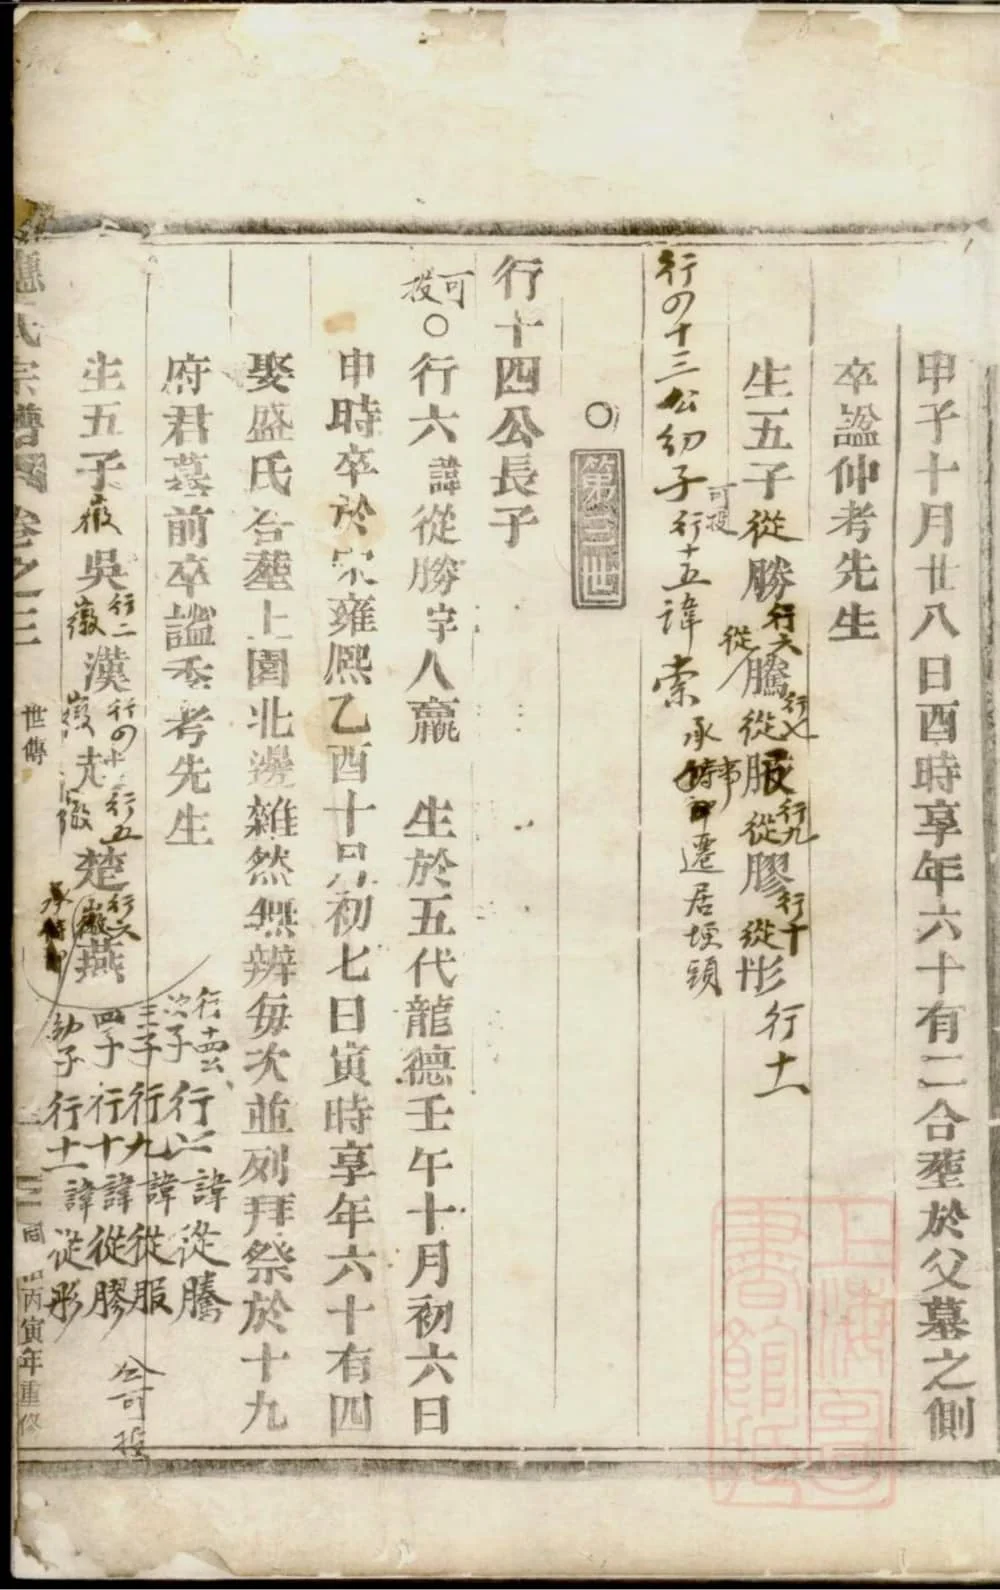 甲子十月廿八日酉時享年六十有二合塟於父墓之側
卒諡仲考先生
生五子從勝從騰從服從膠從彤
行六
行七
行九
行十
行十一
可投
行の十三公幼子行十五諱棠承事時卽遷居埂頭
第三世
行十四公長子
可投
○行六諱從勝字人贏 生於五代龍德壬午十月初六日
申時卒於宋雍熙乙酉十月初七日寅時享年六十有四
娶盛氏合塟上園北邊雜然無辨每次並列拜祭於十九
府君墓前卒諡季考先生
生五子徽吳徽漢徽越徽楚徽燕
行二
行の
行五
行六
行十四公
次子行七諱從騰
三子行九諱從服
四子行十諱從膠
幼子行十一諱從彤
公可投
氏宗譜 卷之三 世傳 丙寅年重修
上海圖書館藏